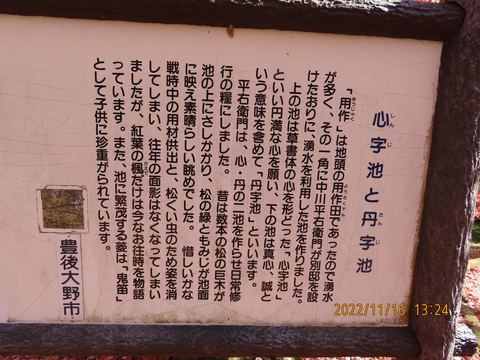 心字池と丹字池
しんじ
だんじ
「用作」は地頭の用作田であったので湧水
が多く、その一角に中川平右衛門が別邸を設
けたおりに、湧水を利用した池を作りました。
上の池は草書体の心を形どった「心字池」
といい円満な心を願い、下の池は真心、誠と
いう意味を含めて「丹字池」といいます。
平右衛門は、心・丹の二池を作らせ日常修
行の糧にしました。昔は数本の松の巨木が
池の上にさしかかり、松の緑ともみじが池面
に映え素晴らしい眺めでした。惜しいかな
戦時中の用材供出と、松くい虫のため姿を消
してしまい、往年の面影はなくなってしまい
ましたが、紅葉の楓だけは今なお往時を物語
っています。また、池に繁茂する菱は「鬼菌」
として子供に珍重がられています。
豊後大野市
2022/11/16 13:24